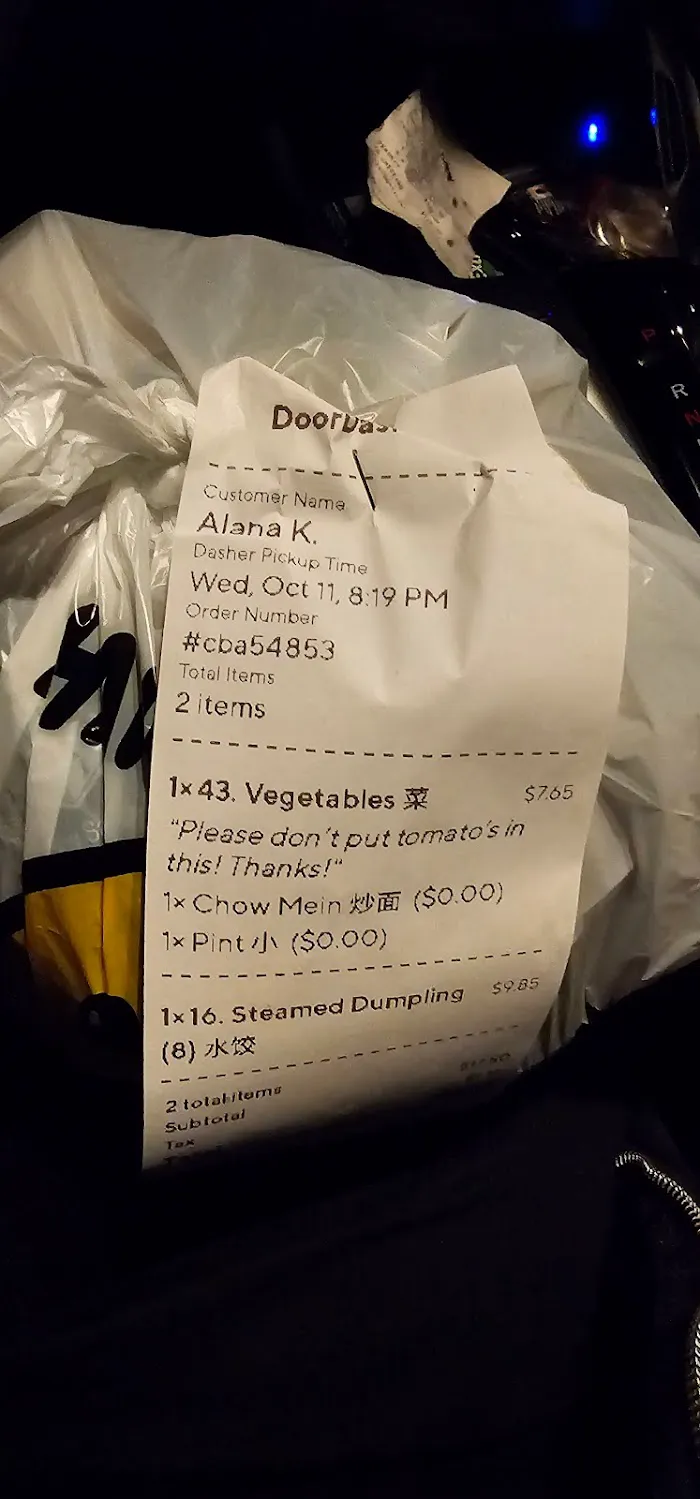 DoorDas
Customer Name
Alana K.
Dasher Pickup Time
Wed, Oct 11, 8:19 PM
Order Number
#cba54853
Total Items
2 items
1× 43. Vegetables 菜 $7.65
"Please don't put tomato's in
this! Thanks!"
1× Chow Mein 炒面 ($0.00)
1× Pint 小 ($0.00)
1×16. Steamed Dumpling $9.85
(8) 水饺
2 total items
Subtotal
Tax
P
R
N